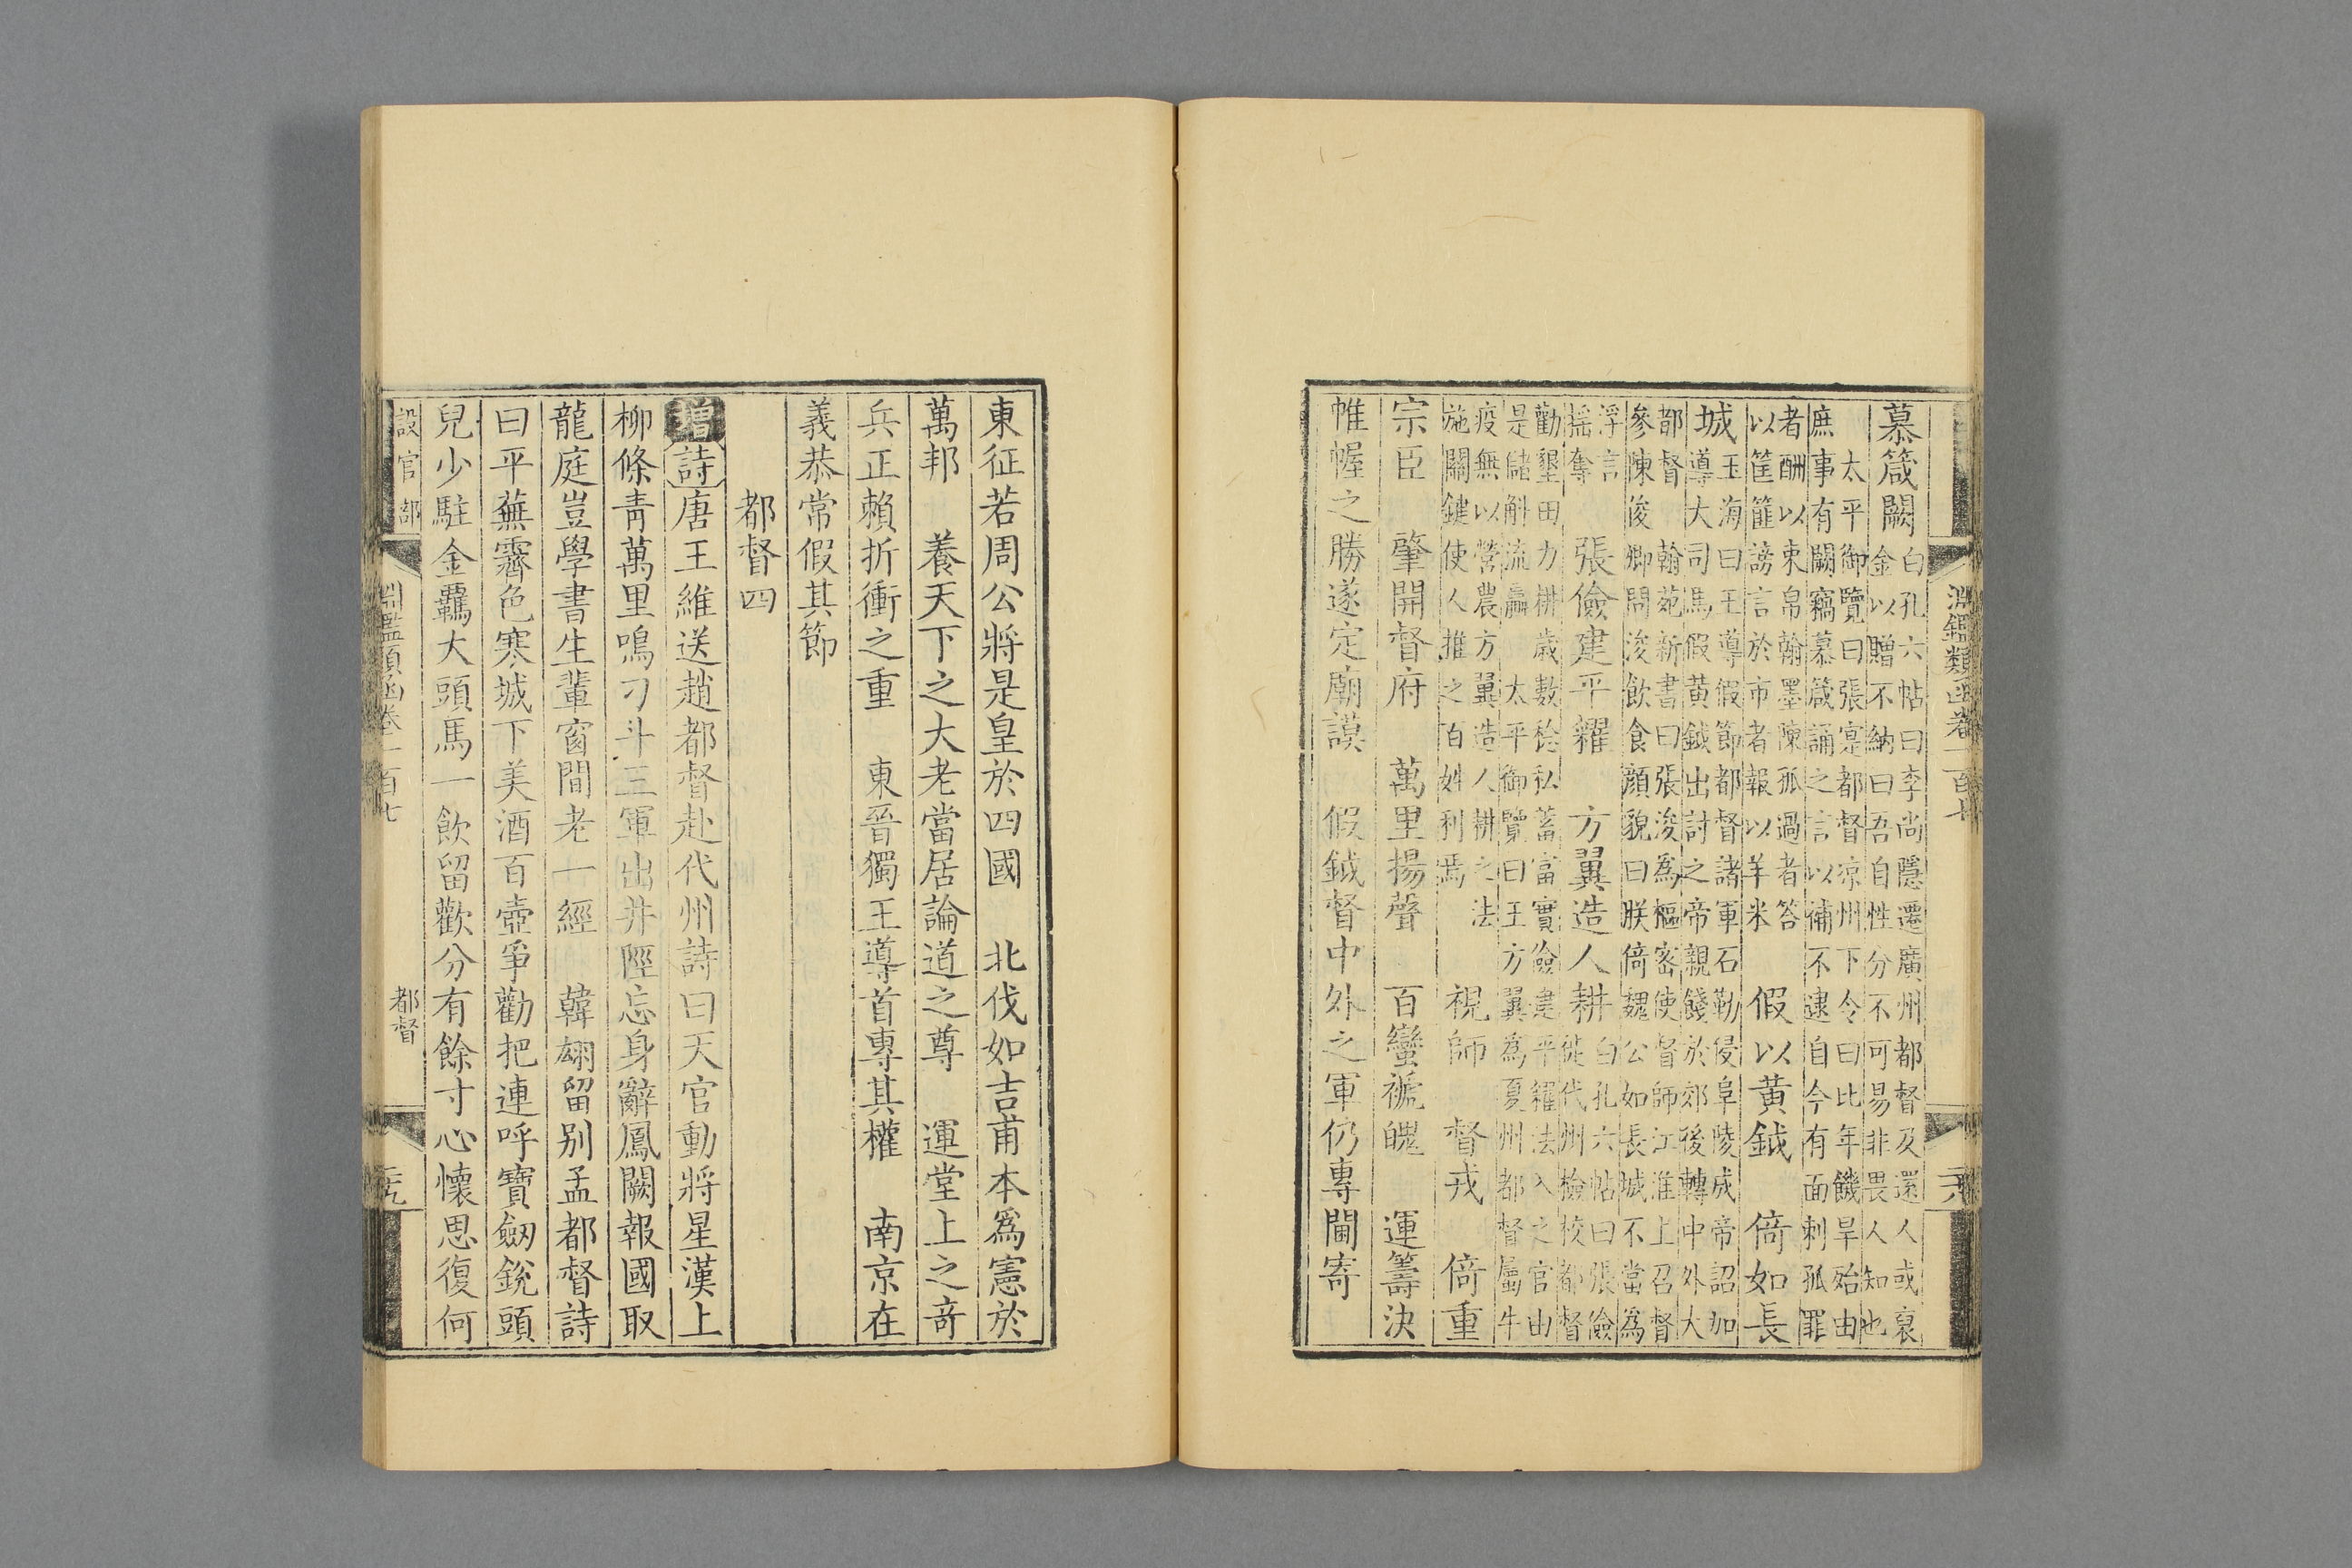 淵鑑類函卷一百七
慕箴闕
白孔六帖曰李尚隱遷廣州都督及還人或裒
金以贈不納曰吾自性分不可易非畏人知也
太平御覽曰張寔都督凉州下令曰比年饑旱殆由
庶事有闕竊慕箴誦之言以補不逮自今有面刺孤罪
者酬以束帛翰墨陳孤過者荅
以筐篚謗言於市者報以羊米
假以黄鉞　倚如長
城
玉海曰王導假節都督諸軍石勒侵阜陵成帝詔加
導大司馬假黄鉞出討之帝親餞於郊後轉中外大
都督　翰苑新書曰張浚為樞密使督師江淮上召督
參陳俊卿問浚飲食顔貌曰朕倚魏公如長城不當為
浮言
摇奪
張儉建平糴　方翼造人耕
白孔六帖曰張儉
徙代州檢校都督
勸墾田力耕歲數稔私蓄富實儉建平糴法入之官由
是儲斛流羸　太平御覽曰王方翼為夏州都督屬牛
疫無以營農方翼造人耕之法
施關鍵使人推之百姓利焉
視師　督戎　倚重
宗臣　肇開督府　萬里揚聲　百蠻褫魄　運籌決
帷幄之勝遂定廟謨　假鉞督中外之軍仍專閫寄
東征若周公將是皇於四國　北伐如吉甫本爲憲於
萬邦　養天下之大老當居論道之尊　運堂上之奇
兵正賴折衝之重　東晉獨王導首專其權　南京在
義恭常假其節
都督四
增詩唐王維送趙都督赴代州詩曰天官動將星漢上
柳條青萬里鳴刁斗三軍出井陘忘身辭鳳闕報國取
龍庭豈學書生輩窗間老一經　韓翃留别孟都督詩
曰平蕪霽色寒城下美酒百壺爭勸把連呼寶劔銳頭
兒少駐金羈大頭馬一飲留歡分有餘寸心懷思復何
設官部　淵鑑類函卷一百七　都督